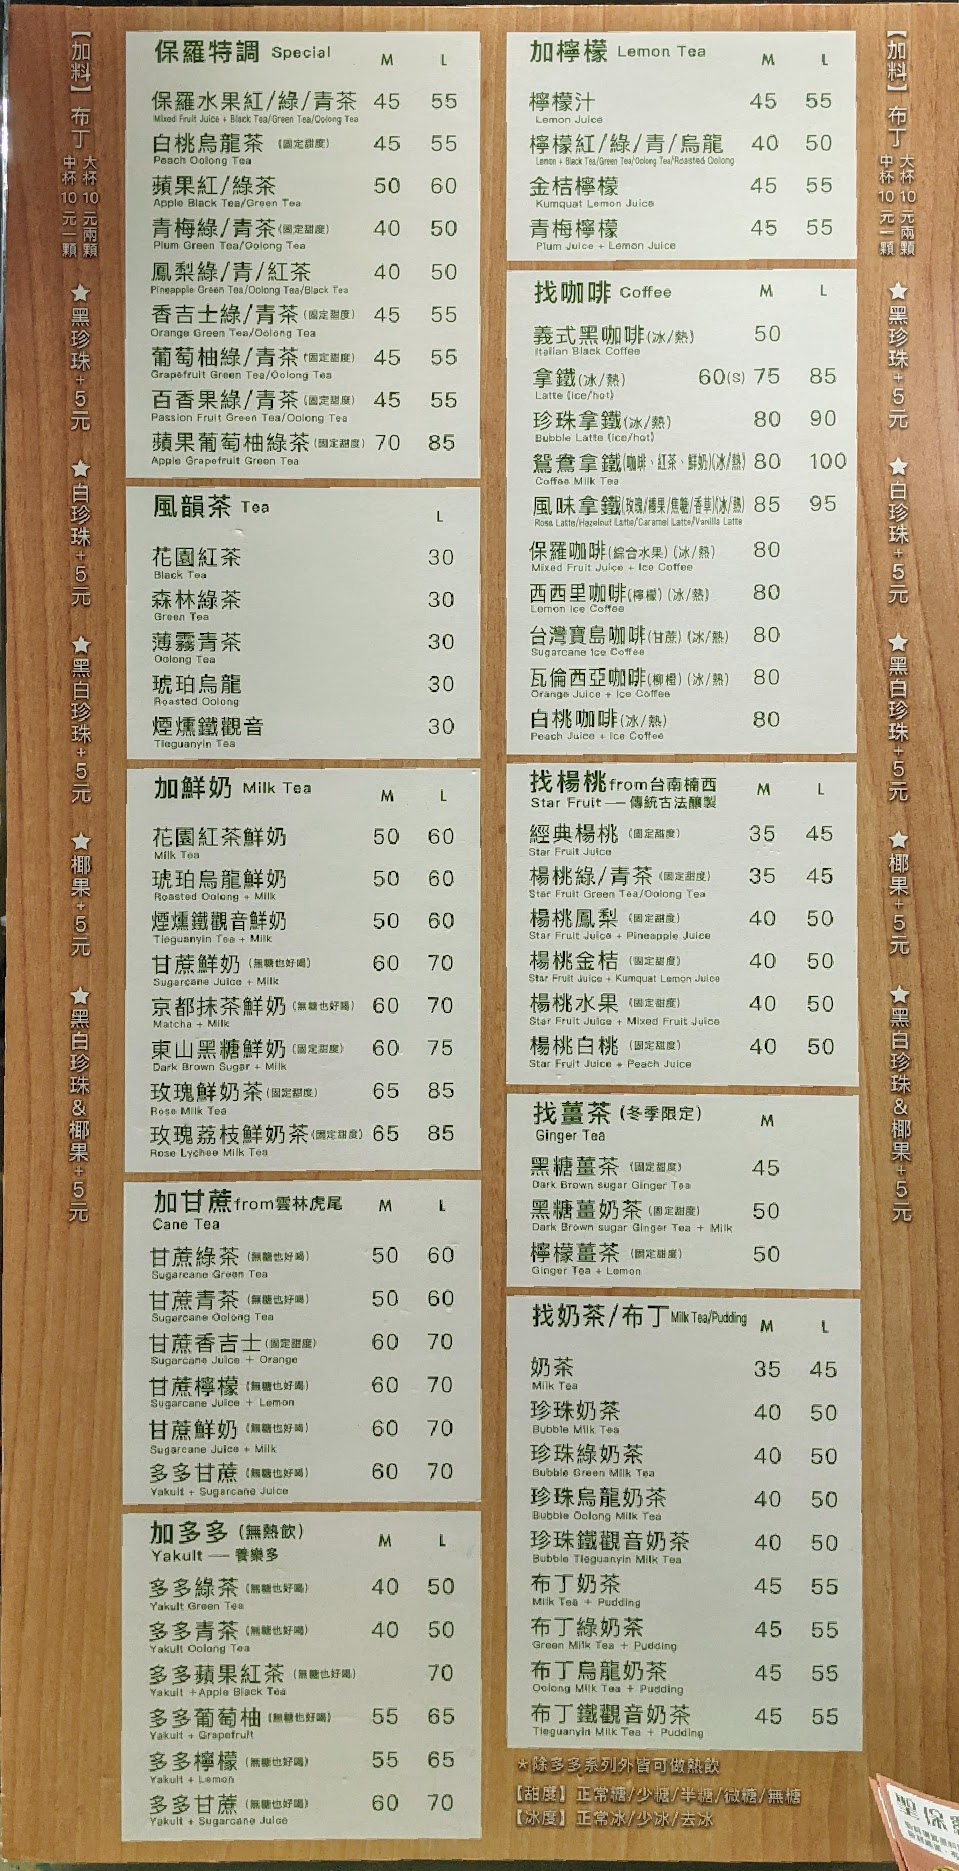 【加料】布丁 大杯10元兩顆
中杯10元一顆
★黑珍珠+5元
★白珍珠+5元
★黑白珍珠+5元
★椰果+5元
★黑白珍珠&椰果+5元
保羅特調 Special M L
保羅水果紅/綠/青茶 45 55
Mixed Fruit Juice + Black Tea/Green Tea/Oolong Tea
白桃烏龍茶 (固定甜度) 45 55
Peach Oolong Tea
蘋果紅/綠茶 50 60
Apple Black Tea/Green Tea
青梅綠/青茶(固定甜度) 40 50
Plum Green Tea/Oolong Tea
鳳梨綠/青/紅茶 40 50
Pineapple Green Tea/Oolong Tea/Black Tea
香吉士綠/青茶(固定甜度) 45 55
Orange Green Tea/Oolong Tea
葡萄柚綠/青茶(固定甜度) 45 55
Grapefruit Green Tea/Oolong Tea
百香果綠/青茶(固定甜度) 45 55
Passion Fruit Green Tea/Oolong Tea
蘋果葡萄柚綠茶(固定甜度) 70 85
Apple Grapefruit Green Tea
風韻茶 Tea L
花園紅茶 30
Black Tea
森林綠茶 30
Green Tea
薄霧青茶 30
Oolong Tea
琥珀烏龍 30
Roasted Oolong
煙燻鐵觀音 30
Tieguanyin Tea
加鮮奶 Milk Tea M L
花園紅茶鮮奶 50 60
Milk Tea
琥珀烏龍鮮奶 50 60
Roasted Oolong + Milk
煙燻鐵觀音鮮奶 50 60
Tieguanyin Tea + Milk
甘蔗鮮奶(無糖也好喝) 60 70
Sugarcane Juice + Milk
京都抹茶鮮奶(無糖也好喝) 60 70
Matcha + Milk
東山黑糖鮮奶(固定甜度) 60 75
Dark Brown Sugar + Milk
玫瑰鮮奶茶(固定甜度) 65 85
Rose Milk Tea
玫瑰荔枝鮮奶茶(固定甜度) 65 85
Rose Lychee Milk Tea
加甘蔗from雲林虎尾 M L
Cane Tea
甘蔗綠茶(無糖也好喝) 50 60
Sugarcane Green Tea
甘蔗青茶(無糖也好喝) 50 60
Sugarcane Oolong Tea
甘蔗香吉士(固定甜度) 60 70
Sugarcane Juice + Orange
甘蔗檸檬(無糖也好喝) 60 70
Sugarcane Juice + Lemon
甘蔗鮮奶(無糖也好喝) 60 70
Sugarcane Juice + Milk
多多甘蔗(無糖也好喝) 60 70
Yakult + Sugarcane Juice
加多多(無熱飲) M L
Yakult — 養樂多
多多綠茶(無糖也好喝) 40 50
Yakult Green Tea
多多青茶(無糖也好喝) 40 50
Yakult Oolong Tea
多多蘋果紅茶(無糖也好喝) 70
Yakult +Apple Black Tea
多多葡萄柚(無糖也好喝) 55 65
Yakult + Grapefruit
多多檸檬(無糖也好喝) 55 65
Yakult + Lemon
多多甘蔗(無糖也好喝) 60 70
Yakult + Sugarcane Juice
加檸檬 Lemon Tea M L
檸檬汁 45 55
Lemon Juice
檸檬紅/綠/青/烏龍 40 50
Lemon + Black Tea/Green Tea/Oolong Tea/Roasted Oolong
金桔檸檬 45 55
Kumquat Lemon Juice
青梅檸檬 45 55
Plum Juice + Lemon Juice
找咖啡 Coffee M L
義式黑咖啡(冰/熱) 50
Italian Black Coffee
拿鐵(冰/熱) 60(S) 75 85
Latte (ice/hot)
珍珠拿鐵(冰/熱) 80 90
Bubble Latte (ice/hot)
鴛鴦拿鐵(咖啡、紅茶、鮮奶)(冰/熱) 80 100
Coffee Milk Tea
風味拿鐵(玫瑰/榛果/焦糖/香草)(冰/熱) 85 95
Rose Latte/Hazelnut Latte/Caramel Latte/Vanilla Latte
保羅咖啡(綜合水果)(冰/熱) 80
Mixed Fruit Juice + Ice Coffee
西西里咖啡(檸檬)(冰/熱) 80
Lemon Ice Coffee
台灣寶島咖啡(甘蔗)(冰/熱) 80
Sugarcane Ice Coffee
瓦倫西亞咖啡(柳橙)(冰/熱) 80
Orange Juice + Ice Coffee
白桃咖啡(冰/熱) 80
Peach Juice + Ice Coffee
找楊桃from台南楠西 M L
Star Fruit — 傳統古法釀製
經典楊桃 (固定甜度) 35 45
Star Fruit Juice
楊桃綠/青茶(固定甜度) 35 45
Star Fruit Green Tea/Oolong Tea
楊桃鳳梨 (固定甜度) 40 50
Star Fruit Juice + Pineapple Juice
楊桃金桔 (固定甜度) 40 50
Star Fruit Juice + Kumquat Lemon Juice
楊桃水果 (固定甜度) 40 50
Star Fruit Juice + Mixed Fruit Juice
楊桃白桃 (固定甜度) 40 50
Star Fruit Juice + Peach Juice
找薑茶(冬季限定) M
Ginger Tea
黑糖薑茶 (固定甜度) 45
Dark Brown sugar Ginger Tea
黑糖薑奶茶(固定甜度) 50
Dark Brown sugar Ginger Tea + Milk
檸檬薑茶 (固定甜度) 50
Ginger Tea + Lemon
找奶茶/布丁 Milk Tea/Pudding M L
奶茶 35 45
Milk Tea
珍珠奶茶 40 50
Bubble Milk Tea
珍珠綠奶茶 40 50
Bubble Green Milk Tea
珍珠烏龍奶茶 40 50
Bubble Oolong Milk Tea
珍珠鐵觀音奶茶 40 50
Bubble Tieguanyin Milk Tea
布丁奶茶 45 55
Milk Tea + Pudding
布丁綠奶茶 45 55
Green Milk Tea + Pudding
布丁烏龍奶茶 45 55
Oolong Milk Tea + Pudding
布丁鐵觀音奶茶 45 55
Tieguanyin Milk Tea + Pudding
*除多多系列外皆可做熱飲
【甜度】正常糖/少糖/半糖/微糖/無糖
【冰度】正常冰/少冰/去冰
【加料】布丁 大杯10元兩顆
中杯10元一顆
★黑珍珠+5元
★白珍珠+5元
★黑白珍珠+5元
★椰果+5元
★黑白珍珠&椰果+5元
聖保